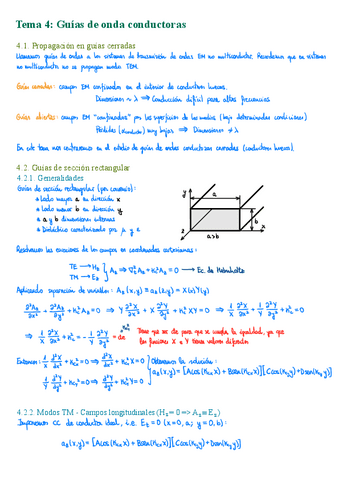 Tema 4: Guías de onda conductoras
4.1. Propagación en guías cerradas
Llamamos guías de ondas a los sistemas de transmisión de ondas EM no multiconductor. Recordemos que en sistemas
no multiconducto no se propagan modos TEM.
Guías cerradas: campos EM confinados en el interior de conductores huecos.
Dimensiones ~ λ ⟹ Conducción difícil para altas frecuencias
Guías abiertas: campos EM "confinados" por las superficies de los medios (bajo determinadas condiciones)
Pérdidas muy bajas ⟹ Dimensiones ≠ λ
En este tema nos centraremos en el estudio de guías de ondas conductoras cerradas (conductores huecos).
4.2. Guías de sección rectangular
4.2.1. Generalidades
Guías de sección rectangular (por convenio):
• Lado mayor a en dirección x
• Lado menor b en dirección y
• a y b dimensiones internas
• Dieléctrico caracterizado por μ y ε
y
a
b
x
z
a>b
Resolvemos las ecuaciones de los campos en coordenadas cartesianas:
TE → Hz
TM → Ez
Az ⟹ ∇²Az + Kc²Az = 0 ⟶ Ec. de Helmholtz
Aplicando separación de variables: Az(x,y) = az(x,y) = X(x)Y(y)
∂²Az/∂x² + ∂²Az/∂y² + Kc²Az = 0 ⟹ Y ∂²X/∂x² + X ∂²Y/∂y² + Kc² XY = 0 ⟹ 1/X ∂²X/∂x² + 1/Y ∂²Y/∂y² + Kc² = 0
⟹ 1/X ∂²X/∂x² + Kc² = - 1/Y ∂²Y/∂y² = cte
Tiene que ser cte para que se cumpla la igualdad, ya que
las funciones X e Y tienen valores diferentes
Entonces:
1/X d²X/dx² + Kcx² = 0 ⟹ d²X/dx² + Kcx² X = 0
1/Y d²Y/dy² + Kcy² = 0 ⟹ d²Y/dy² + Kcy² Y = 0
Obtenemos la solución:
az(x,y) = [A cos(Kcx x) + B sen(Kcx x)][C cos(Kcy y) + D sen(Kcy y)]
4.2.2. Modos TM - Campos longitudinales (Hz = 0 => Az ≡ Ez)
Imponemos CC de conductor ideal, i.e. Ez = 0 (x = 0, a; y = 0, b):
az(x,y) = [A cos(Kcx x) + B sen(Kcx x)][C cos(Kcy y) + D sen(Kcy y)]